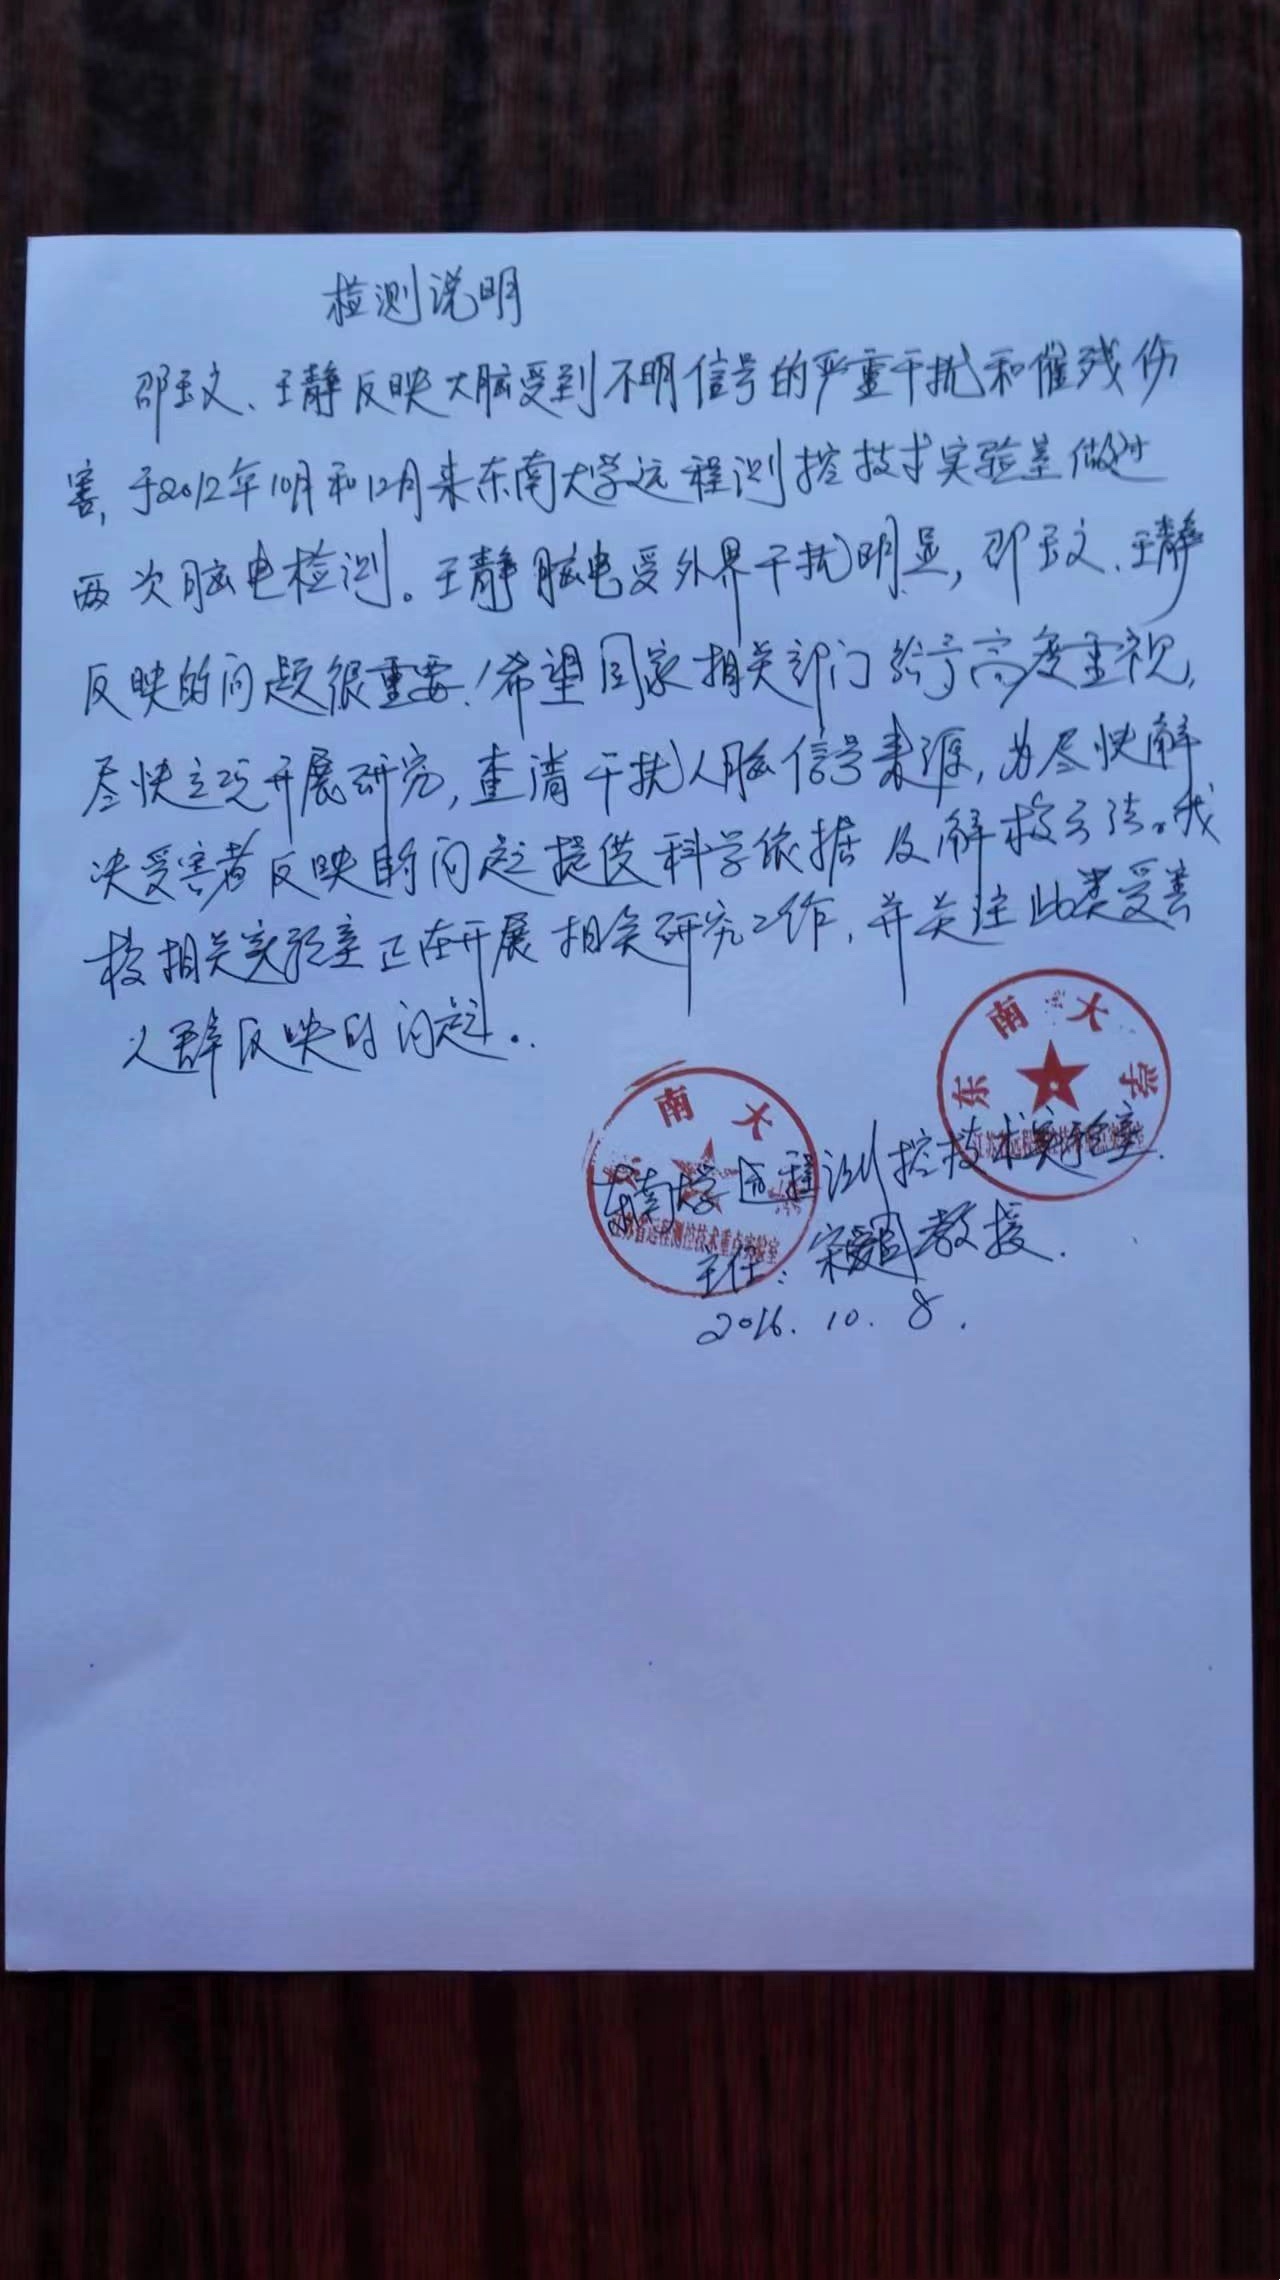 检测说明
邵玉文、王静反映大脑受到不明信号的严重干扰和催残伤
害,于2012年10月和12月来东南大学远程测控技术实验室做过
两次脑电检测。王静脑电受外界干扰明显,邵玉文、王静
反映的问题很重要!希望国家相关部门给予高度重视,
尽快立项开展研究,查清干扰人脑信号来源,为尽快解
决受害者反映的问题提供科学依据及解救方法。我
校相关实验室正在开展相关研究工作,并关注此类受害
人群反映的问题。
东南大学
南大
东南大学远程测控技术实验室.
江苏省远程测控技术重点实验室
主任:宋爱国教授.
2016.10.8.